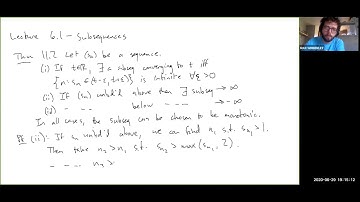 Lecture 6.1 - Subsequences
Thm 11.2 Let (sn) be a sequence.
(i) If t∈R, ∃ a subseq converging to t iff
{n: sn ∈ (t-ε, t+ε)} is infinite ∀ε>0
(ii) If (sn) unbd'd above then ∃ subseq → ∞
(iii) -- -- below -- -- → -∞
In all cases, the subseq can be chosen to be monotonic.
Pf (ii): If sn unbd'd above, we can find n1 s.t. sn1 > 1.
Then take n2 > n1 s.t. sn2 > max(sn1, 2).
-- -- -- n3 >
2020-06-29 19:15:12